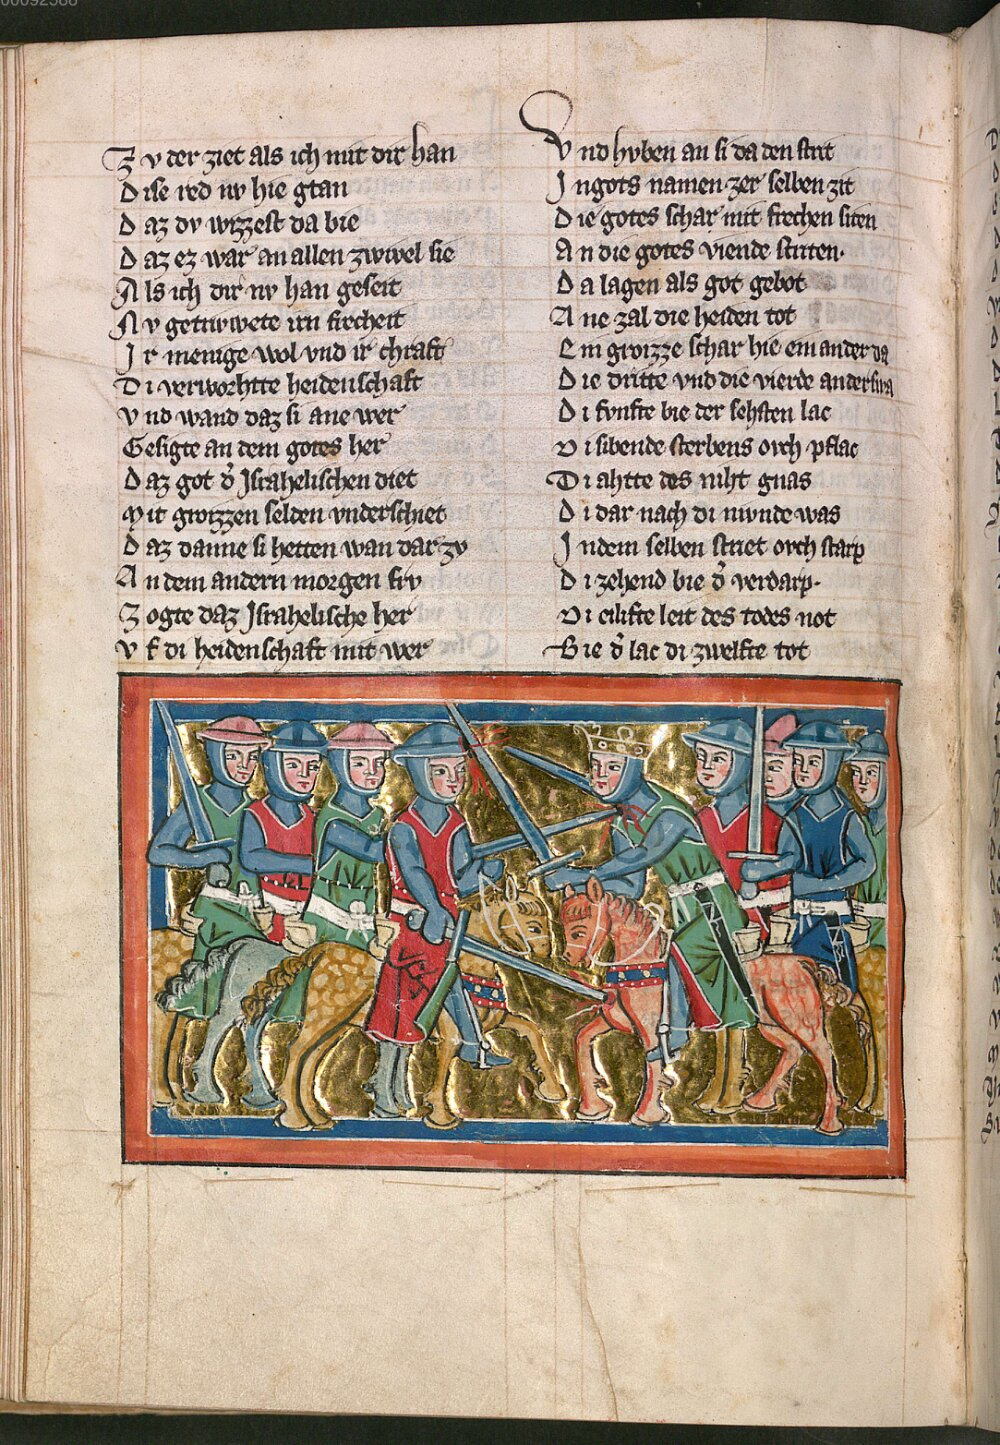 00092588
Zv der ziet als ich mit dir han
Dise red nv hie gtan
Daz dv wizzest da bie
Daz ez war an allen zwivel sie
Als ich dir nv han geseit
Nv getrwete irn frecheit
Ir menige wol vnd ir chraft
Di verworhtte heidenschaft
Vnd wand daz si ane wer
Gesigte an dem gotes her
Daz got d̾ Israhelischen diet
Mit groizzen selden vnderschiet
Daz danne si hetten wan dar zv
An dem andern morgen frv
Zogte daz Israhelische her
Vf di heidenschaft mit wer
Vnd hvben an si da den strit
In gots namen zer selben zit
Die gotes schar mit frechen siten
An die gotes viende striten.
Da lagen als got gebot
Ane zal die heiden tot
Ein groizze schar hie ein ander da
Die dritte vnd die vierde anderswa
Di fvnfte bie der sehsten lac
Di sibende sterbens ovch pflac
Di ahtte des niht gnas
Di dar nach di nivnde was
In dem selben striet ovch starp
Di zehend bie d̾ verdarp.
Di eilifte leit des todes not
Bie d̾ lac di zwelfte tot